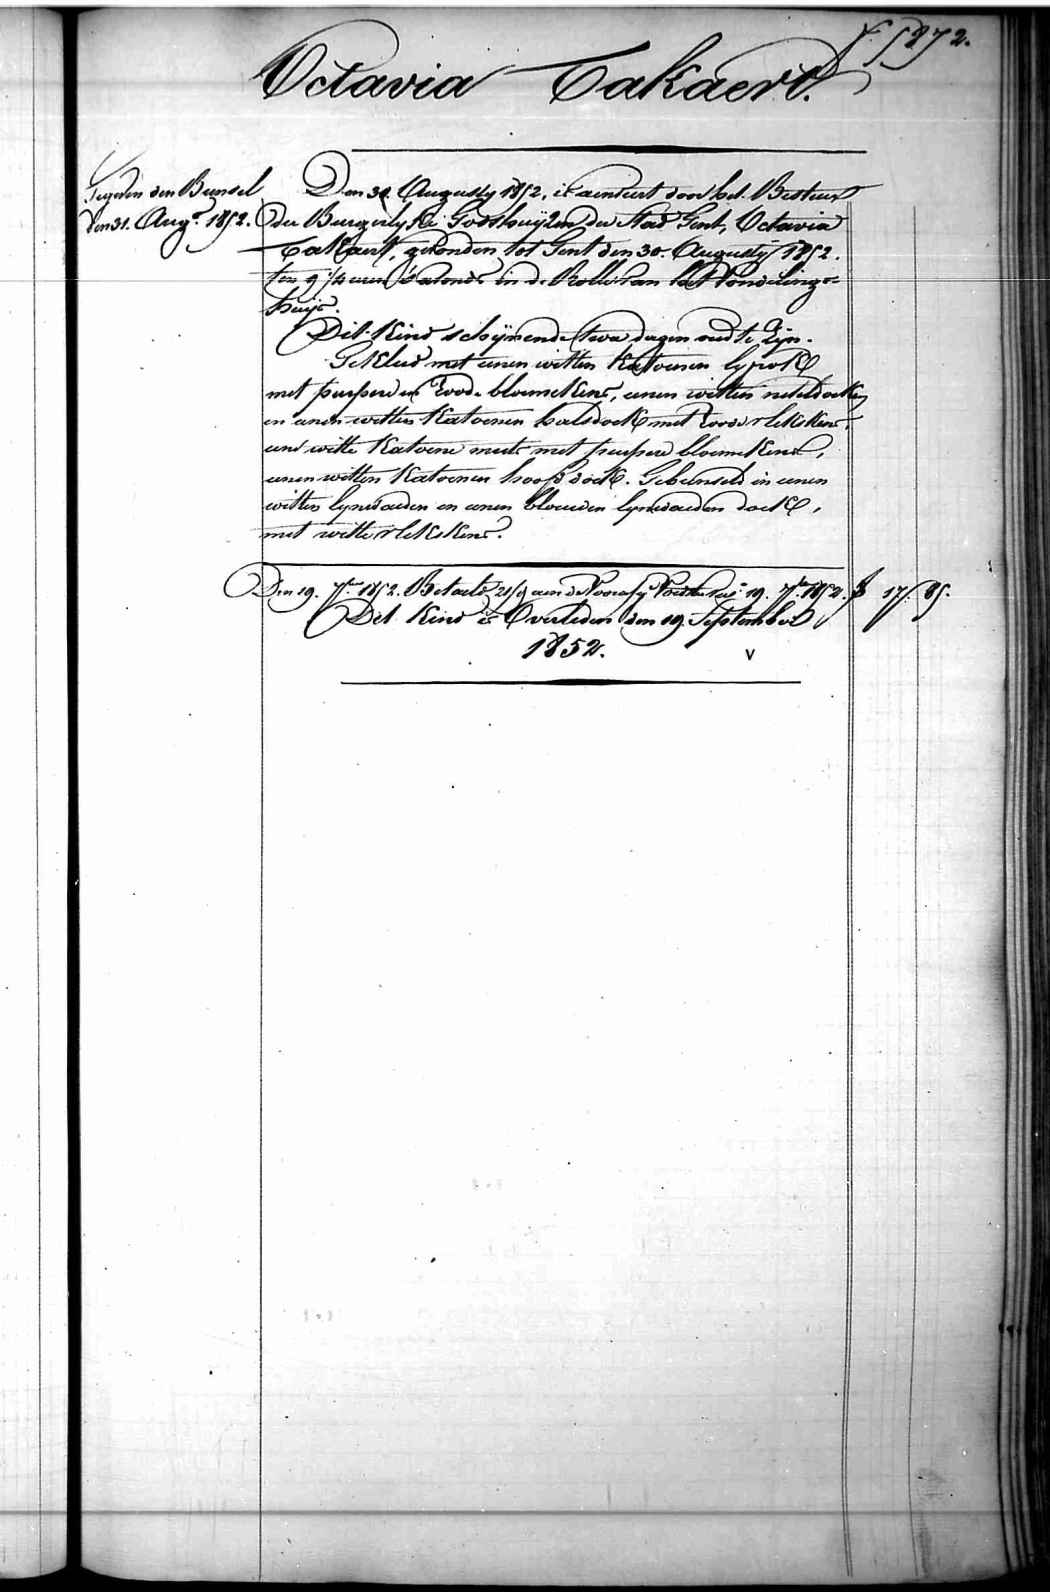 f. 1572.
Octavia Cakaert.
den Bunsel
den 31. Aug.t 1852.
Den 30. Augusty 1852, is aenveert door het Bestuur
der Burgerlyke Godshuijzen der Stad Gent, Octavia
Cakaert, gevonden tot Gent den 30. Augusty 1852.
ten 9 1/4 uren 's avonds in de Rolle van het Vondelings-
huijs.
Dit Kind schijnende twee dagen oud te zijn.
Gekleed met eenen witten Katoenen lyfrok
met purpere en roode bloemekens, eenen witten neteldoeken
en eenen witten Katoenen halsdoek met roode vlekskens,
eene witte Katoene muts met purpere bloemekens,
eenen witten Katoenen hoofddoek. Gebunseld in eenen
witten lynwaeden en eenen blauwen lynwaeden doek,
met witte vlekskens.
Den 19. 7ber 1852. Betaeld aen de Voedster 19. 7ber 1852. f 17. 85.
Dit Kind is Overleden den 19. September
1852.
v